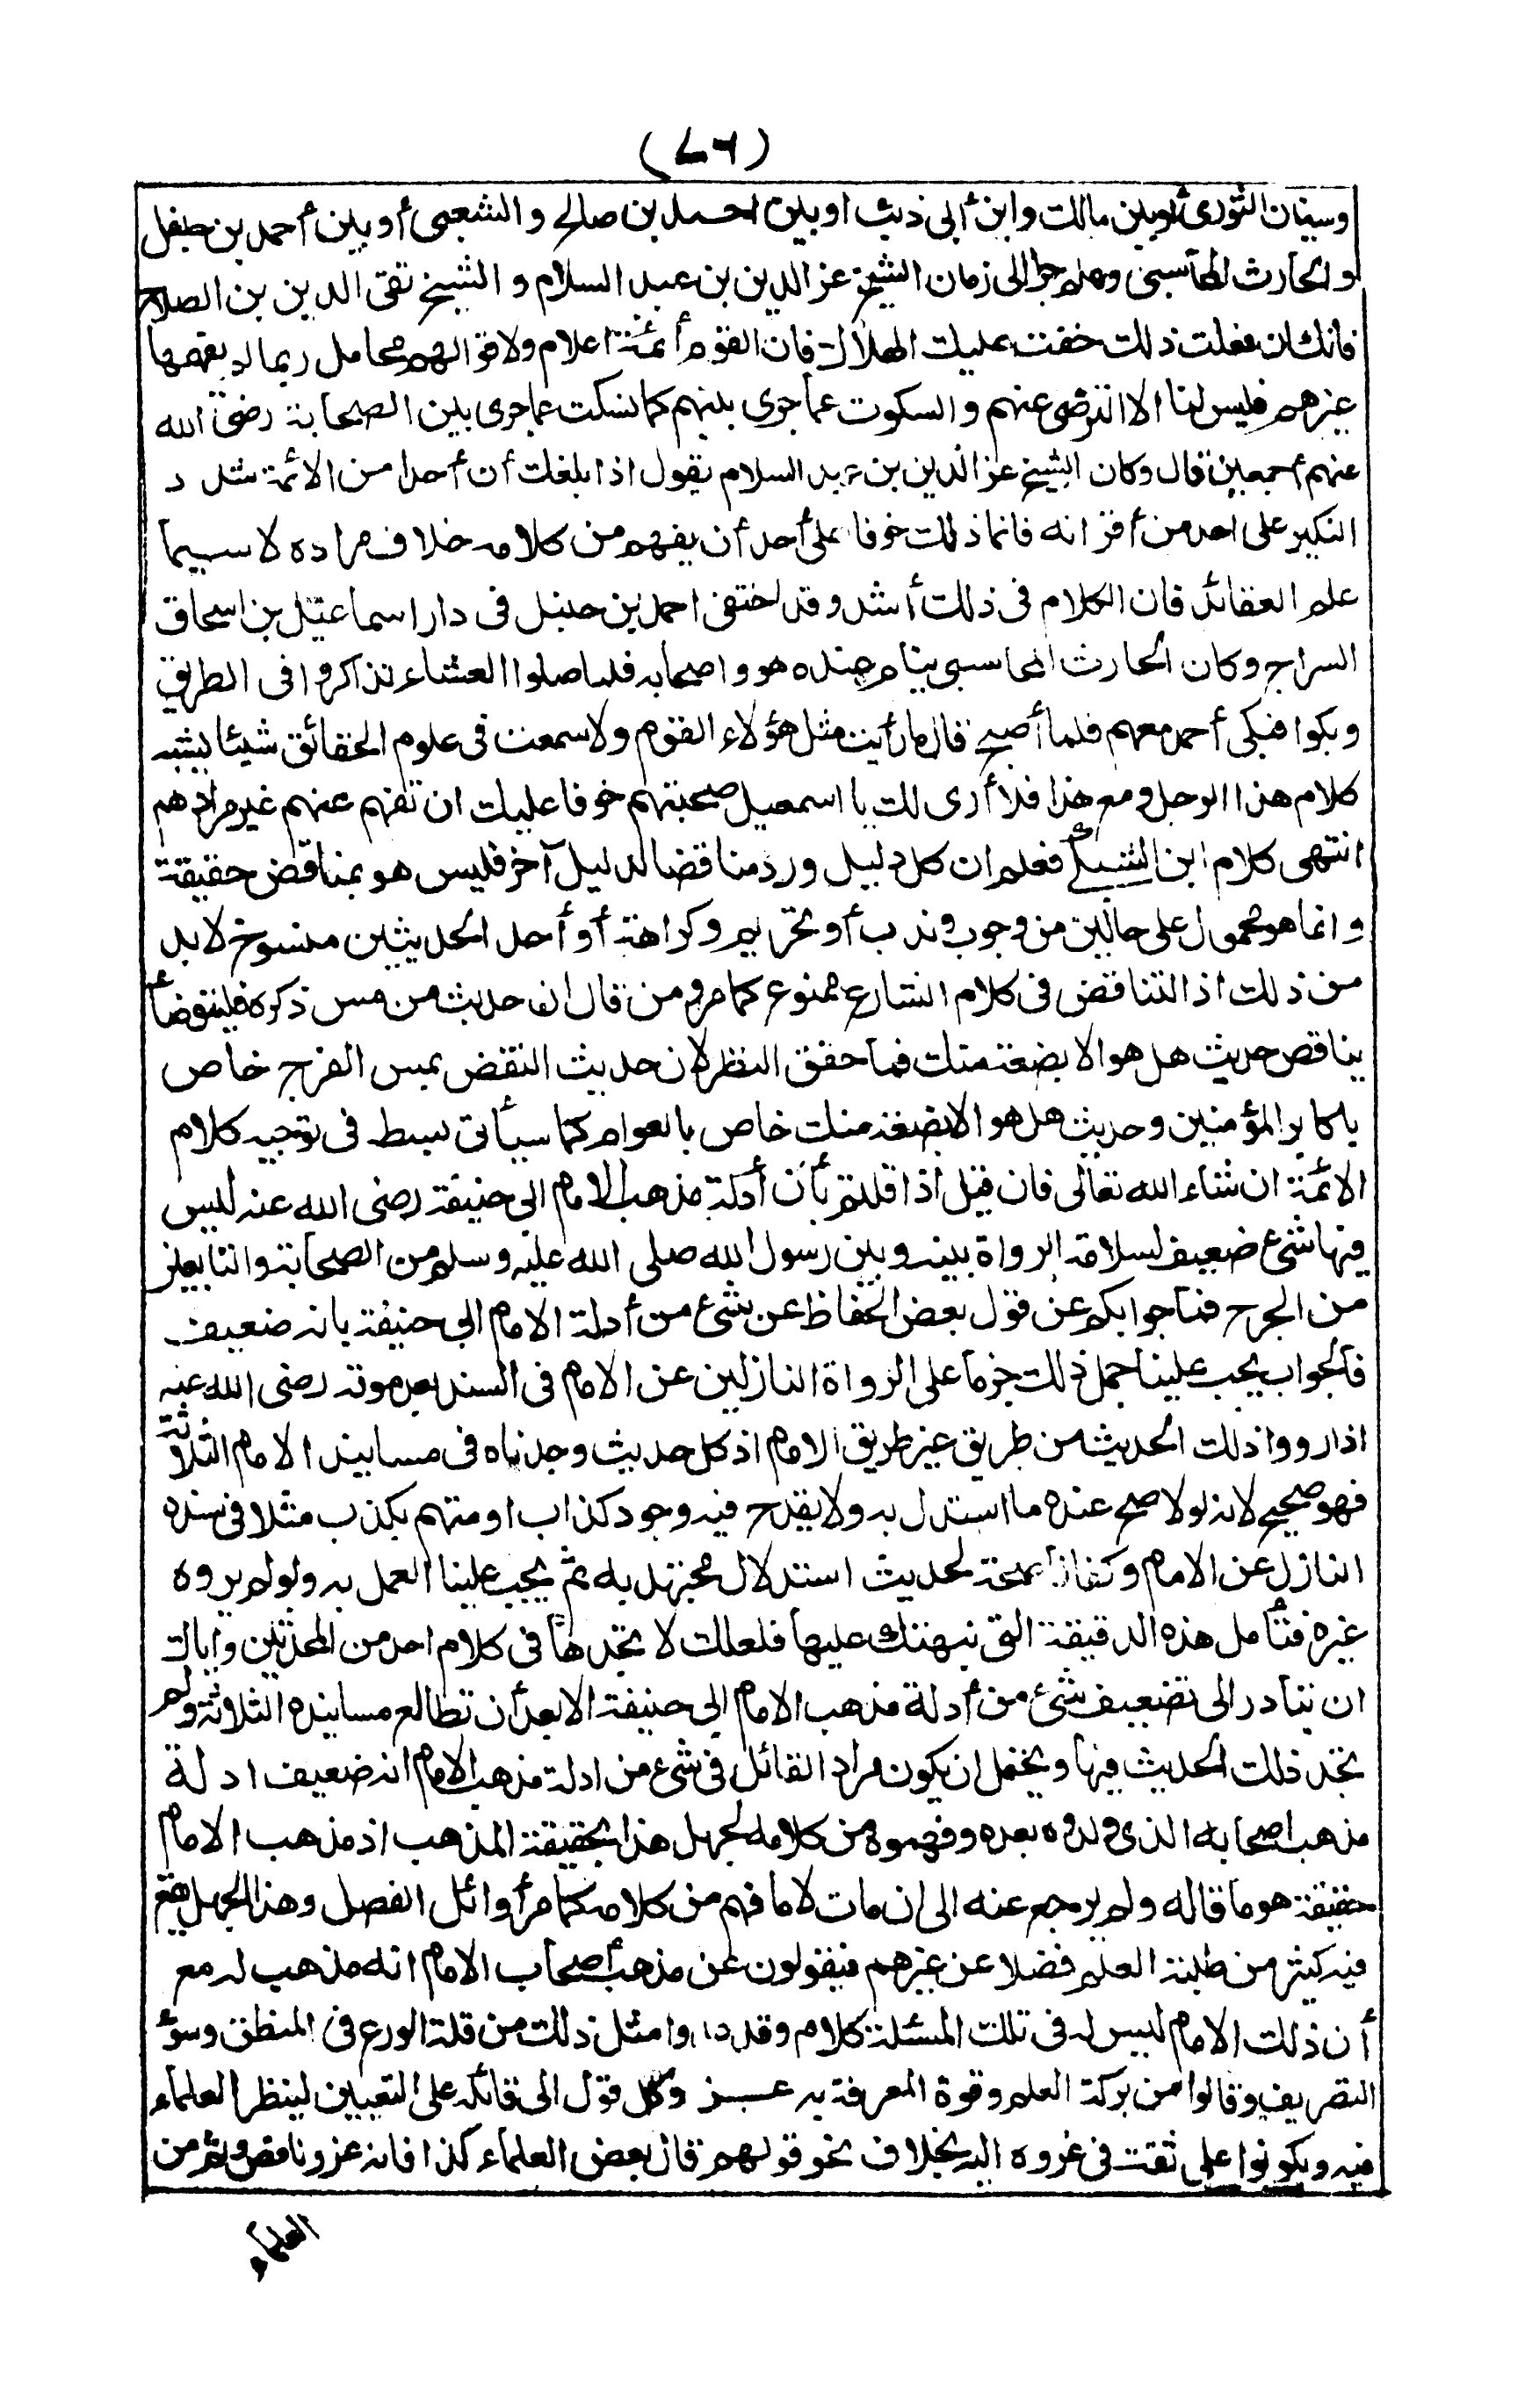 (٧٦)
وسفيان الثورى أوبين مالك وابن أبى ذئب اوبين احمد بن صالح والشعبى أوبين أحمد بن حنبل
والحارث المحاسبى وهلم جرا الى زمان الشيخ عز الدين بن عبد السلام والشيخ تقى الدين بن الصلاح
فانك ان فعلت ذلك خفت عليك الهلاك فان القوم أئمة اعلام ولاقوالهم محامل ربما لم يفهمها
غيرهم فليس لنا الا الترضى عنهم والسكوت عما جرى بينهم كما نسكت عما جرى بين الصحابة رضى الله
عنهم أجمعين قال وكان الشيخ عز الدين بن عبد السلام يقول اذا بلغك أن أحدا من الائمة شدد
النكير على احد من أقرانه فانما ذلك خوفا على أحد أن يفهم من كلامه خلاف مراده لا سيما
علم العقائد فان الكلام فى ذلك أشد وقد اختفى احمد بن حنبل فى دار اسماعيل بن اسحاق
السراج وكان الحارث المحاسبى ينام عنده هو واصحابه فلما صلوا العشاء تذاكروا فى الطريق
وبكوا فبكى أحمد معهم فلما أصبح قال ما رأيت مثل هؤلاء القوم ولا سمعت فى علوم الحقائق شيئا يشبه
كلام هذا الرجل ومع هذا فلا أرى لك يا اسمعيل صحبتهم خوفا عليك ان تفهم عنهم غير مرادهم
انتهى كلام ابن السبكى فعلم ان كل دليل ورد مناقضا لدليل آخر فليس هو بمناقض حقيقة
وانما هو محمول على حالين من وجوب وندب أو تحريم وكراهة أو أحد الحديثين منسوخ لابد
من ذلك اذ التناقض فى كلام الشارع ممنوع كما مر ومن قال ان حديث من مس ذكره فليتوضأ
يناقض حديث هل هو الا بضعة منك فما حقق النظر لان حديث النقض بمس الفرج خاص
باكابر المؤمنين وحديث هل هو الا بضعة منك خاص بالعوام كما سيأتى بسطه فى توجيه كلام
الائمة ان شاء الله تعالى فان قيل اذا قلتم بأن أدلة مذهب الامام ابى حنيفة رضى الله عنه ليس
فيها شىء ضعيف لسلامة الرواة بينه وبين رسول الله صلى الله عليه وسلم من الصحابة والتابعين
من الجرح فما جوابكم عن قول بعض الحفاظ عن شىء من أدلة الامام ابى حنيفة بانه ضعيف
فالجواب يجب علينا حمل ذلك جزما على الرواة النازلين عن الامام فى السند بعد موته رضى الله عنه
اذا رووا ذلك الحديث من طريق غير طريق الامام اذ كل حديث وجدناه فى مسانيد الامام الثلاثة
فهو صحيح لانه لولا صح عنده ما استدل به ولا يقدح فيه وجود كذاب او متهم بكذب مثلا فى سنده
النازل عن الامام وكفانا بصحة لحديث استدلال مجتهد به ثم يجب علينا العمل به ولو لم يروه
غيره فتأمل هذه الدقيقة التى نبهتك عليها فلعلك لا تجدها فى كلام احد من المحدثين واياك
ان تبادر الى تضعيف شىء من أدلة مذهب الامام ابى حنيفة الا بعد أن تطالع مسانيده الثلاثة ولم
تجد ذلك الحديث فيها ويحتمل ان يكون مراد القائل فى شىء من ادلة مذهب الامام انه ضعيف ادلة
مذهب اصحابه الذى ولدوه بعده وفهموه من كلامه لجهل هذا بحقيقة المذهب اذ مذهب الامام
حقيقة هو ما قاله ولم يرجع عنه الى ان مات لا ما فهم من كلامه كما مر أوائل الفصل وهذا الجهل يقع
فيه كثير من طلبة العلم فضلا عن غيرهم فيقولون عن مذهب أصحاب الامام انه مذهب له مع
أن ذلك الامام ليس له فى تلك المسئلة كلام وقد عدوا مثل ذلك من قلة الورع فى المنطق وسوء
التصريف وقالوا من بركة العلم وقوة المعرفة به عــزو كل قول الى قائله على التعيين لينظر العلماء
فيه ويكونوا على ثقة فى عزوه اليه بخلاف نحو قولهم قال بعض العلماء كذا فانه عزو ناقص وثم من
العلماء